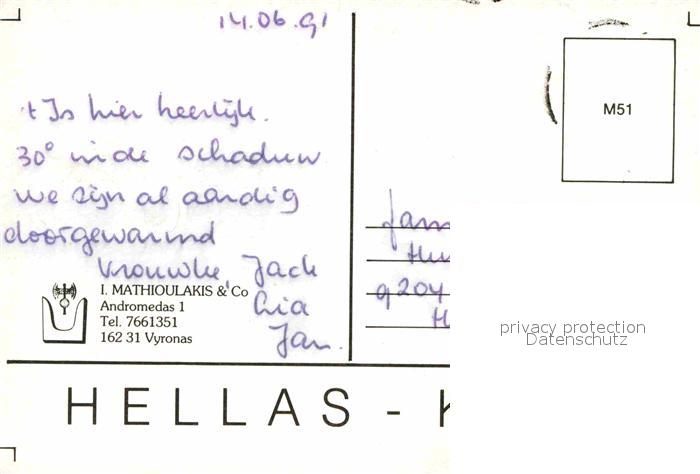 14.06.91
't Is hier heerlijk.
30° in de schaduw
we zijn al aardig
doorgewarmd
Vrouwke, Jack
Lia
Jan.
I. MATHIOULAKIS & Co
Andromedas 1
Tel. 7661351
162 31 Vyronas
M51
Jam
9204
H
privacy protection
Datenschutz
HELLAS -